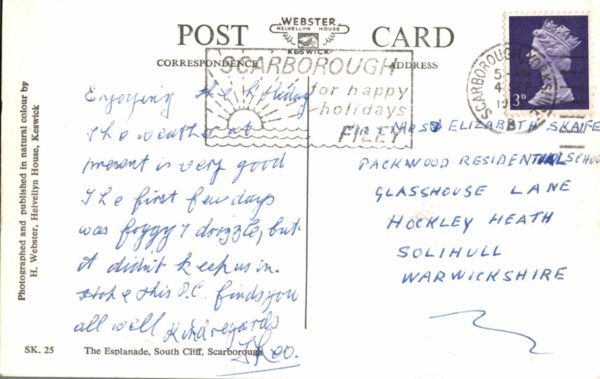 POST CARD
WEBSTER
HELVELLYN HOUSE
KESWICK
CORRESPONDENCE
ADDRESS
SCARBOROUGH
for happy
holidays
FILEY
SCARBOROUGH YORKSHIRE
3D
Enjoying the holiday
The weather at
present is very good
The first few days
was foggy & drizzle, but
it didn't keep us in.
Hope this P.C. finds you
all well Kind regards
MRS ELIZABETH SKAIFE
PACKWOOD RESIDENTIAL SCHOOL
GLASSHOUSE LANE
HOCKLEY HEATH
SOLIHULL
WARWICKSHIRE
Photographed and published in natural colour by
H. Webster, Helvellyn House, Keswick
SK. 25 The Esplanade, South Cliff, Scarborough